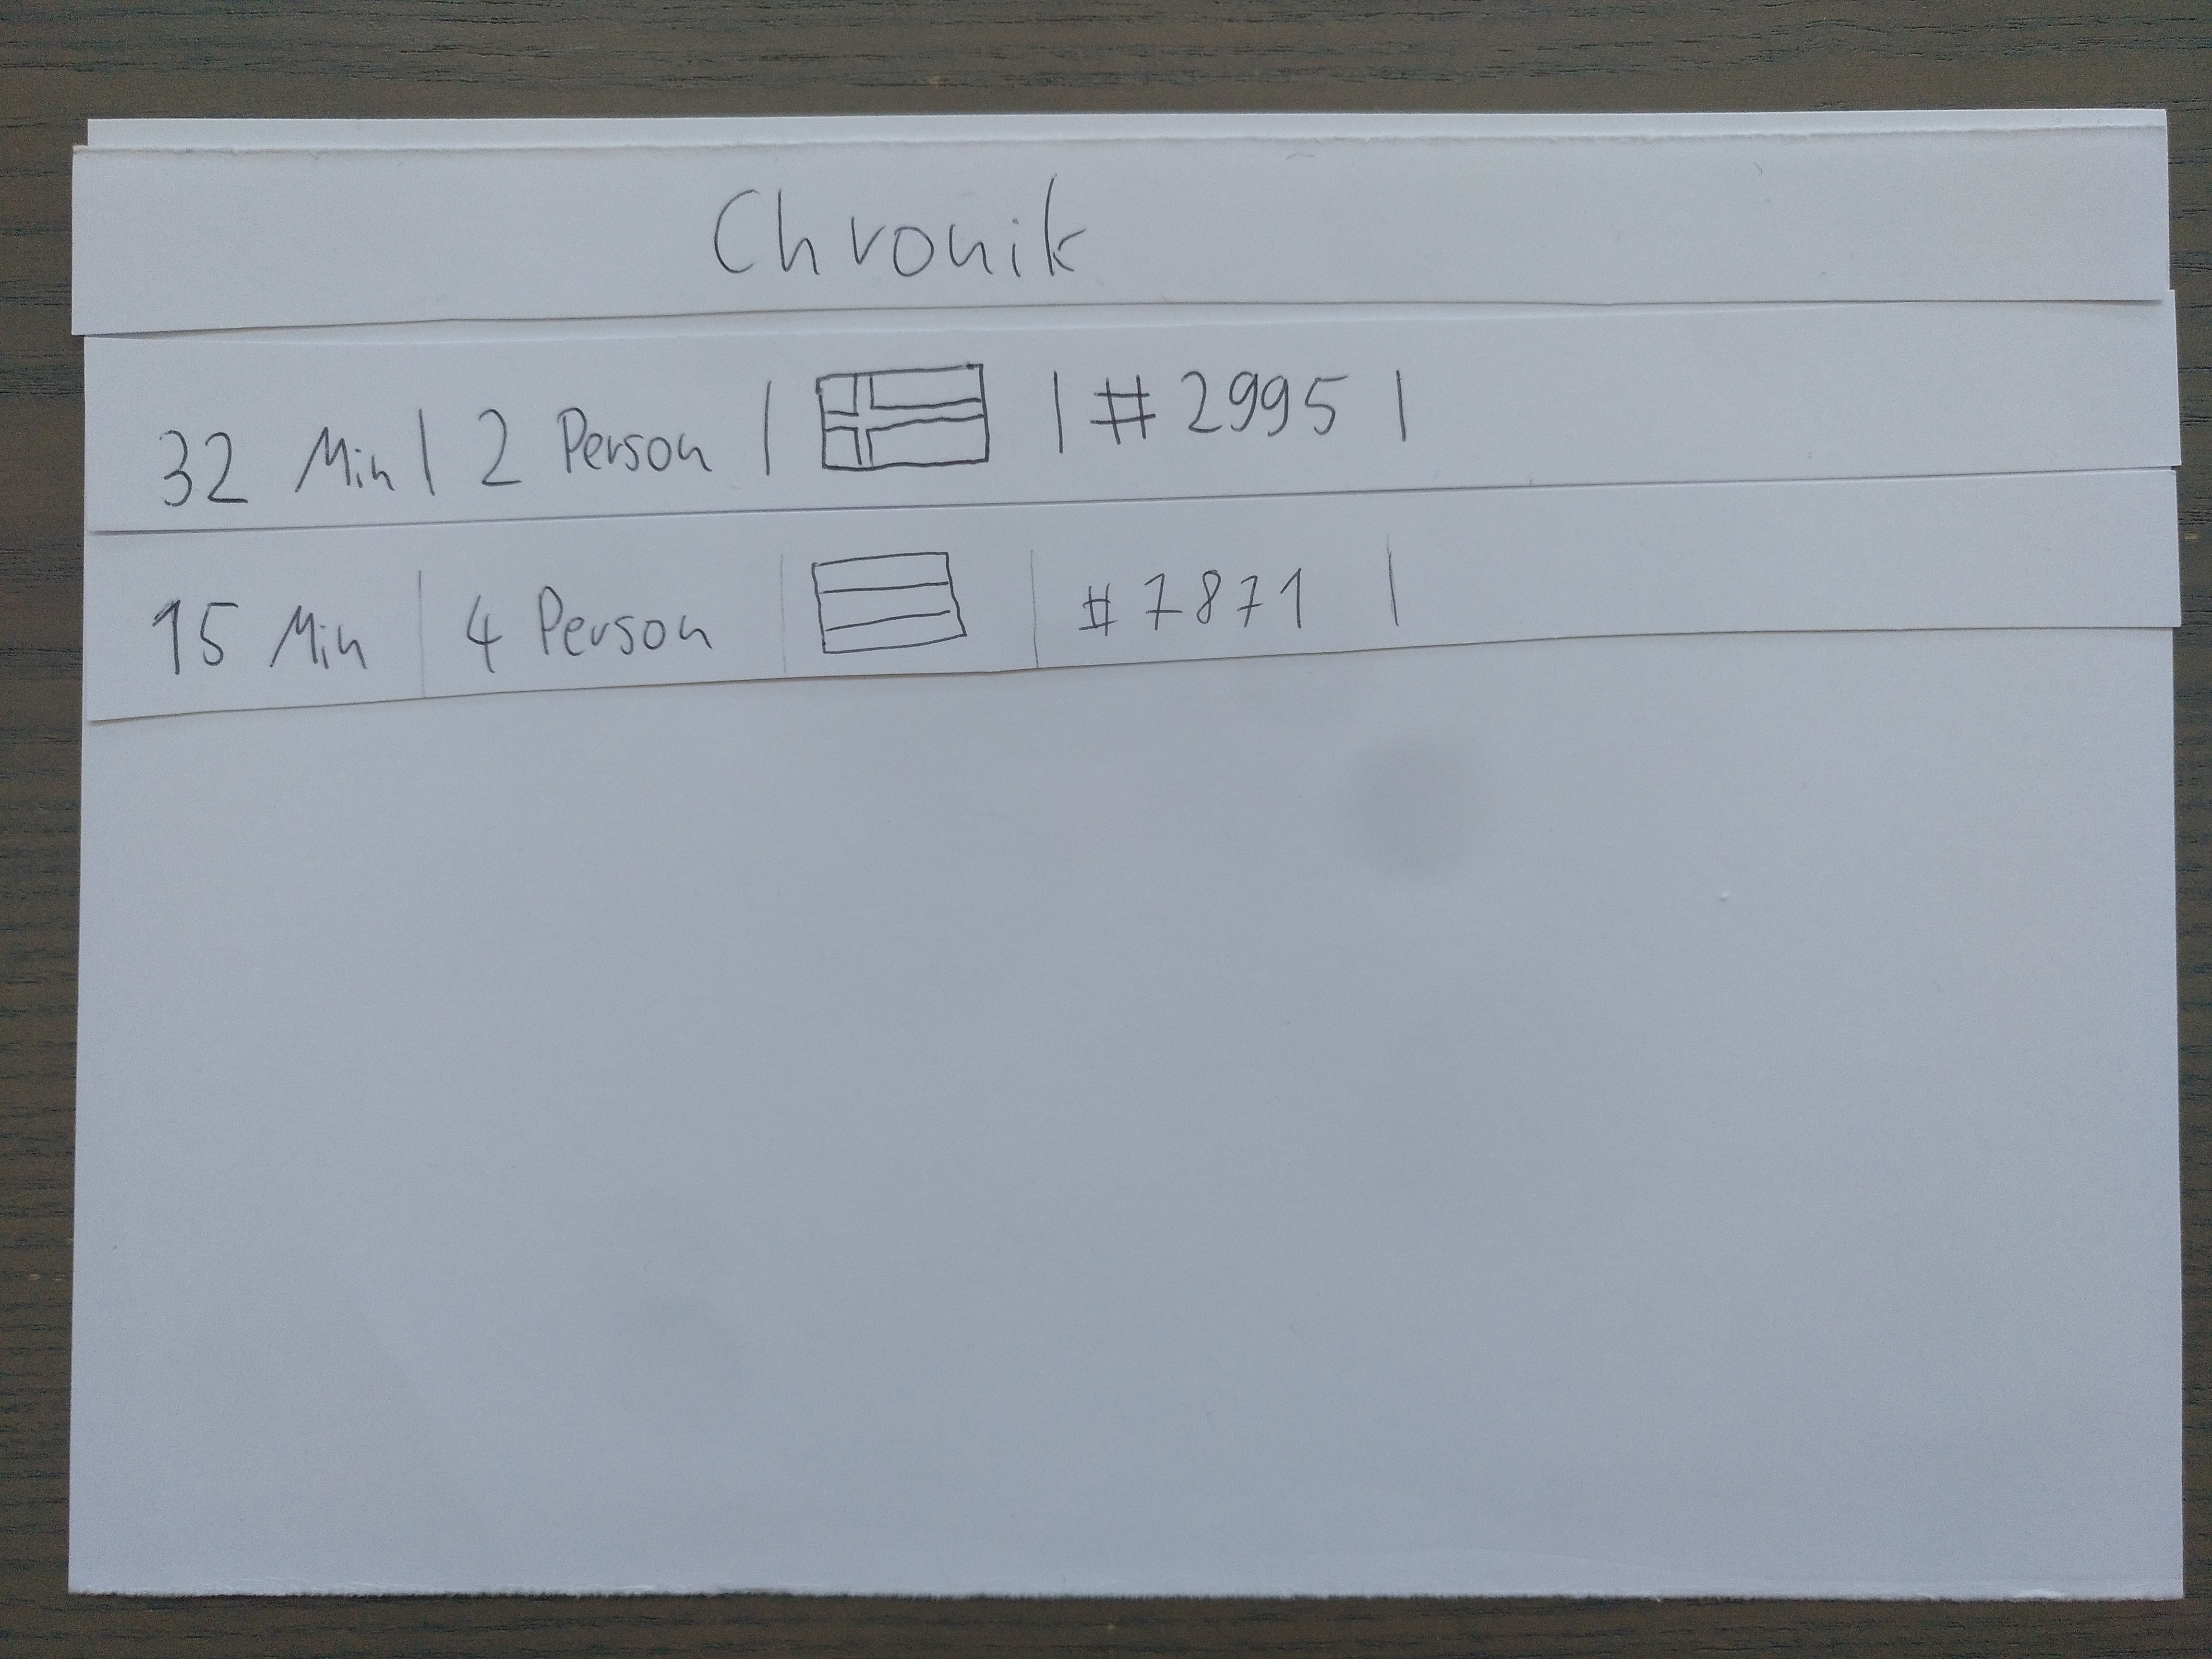 Chronik
32 Min | 2 Person | | # 2995 |
15 Min | 4 Person | | # 7871 |